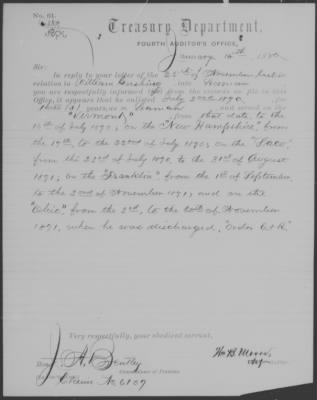 No. 61.
Treasury Department,
FOURTH AUDITOR'S OFFICE,
January 14th, 1880
Sir:
In reply to your letter of the 22d of November last in
relation to William Cushing, late Seaman
you are respectfully informed that from the records on file in this
Office, it appears that he enlisted July 2nd 1870, for
three years, as a Seaman and served on the
"Vermont" from that date to the
14th of July 1870; on the "New Hampshire" from
the 14th, to the 22nd of July 1870; on the "Saco",
from the 23rd of July 1870, to the 31st of August
1871; on the "Franklin" from the 1st of September
to the 2nd of November 1871, and on the
from the 2nd, to the 20th of November
1871, when he was discharged, "order
Very respectfully, your obedient servant,
J. A. Bentley
Commissioner of Pensions
Claim No. 6109